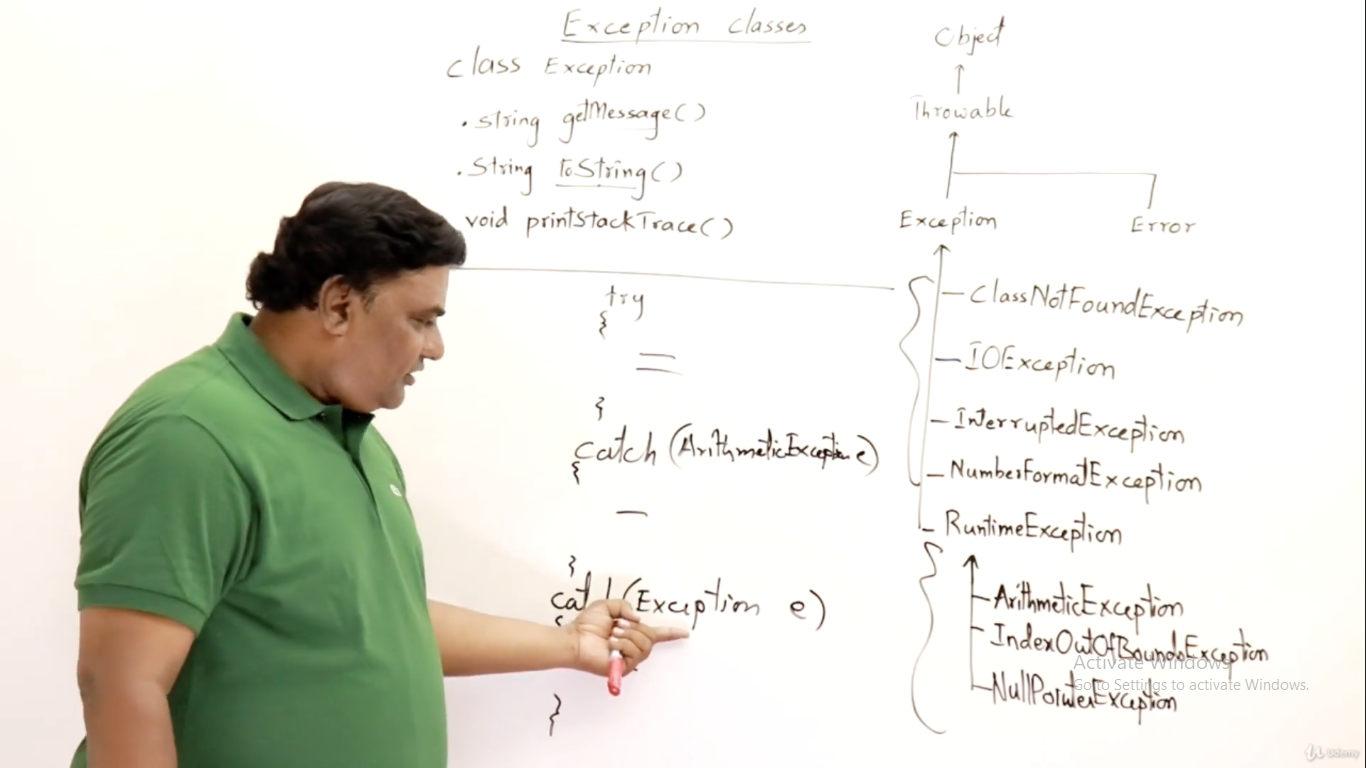 Exception classes
class Exception
. string getMessage()
. String toString()
void printStackTrace()
try
{
}
catch (ArithmeticException e)
{
}
(Exception e)
{
}
Object
Throwable
Exception Error
ClassNotFoundException
IOException
InterruptedException
NumberFormatException
RuntimeException
ArithmeticException
IndexOutOfBoundsException
NullPointerException
Activate Windows
Go to Settings to activate Windows.
Udemy